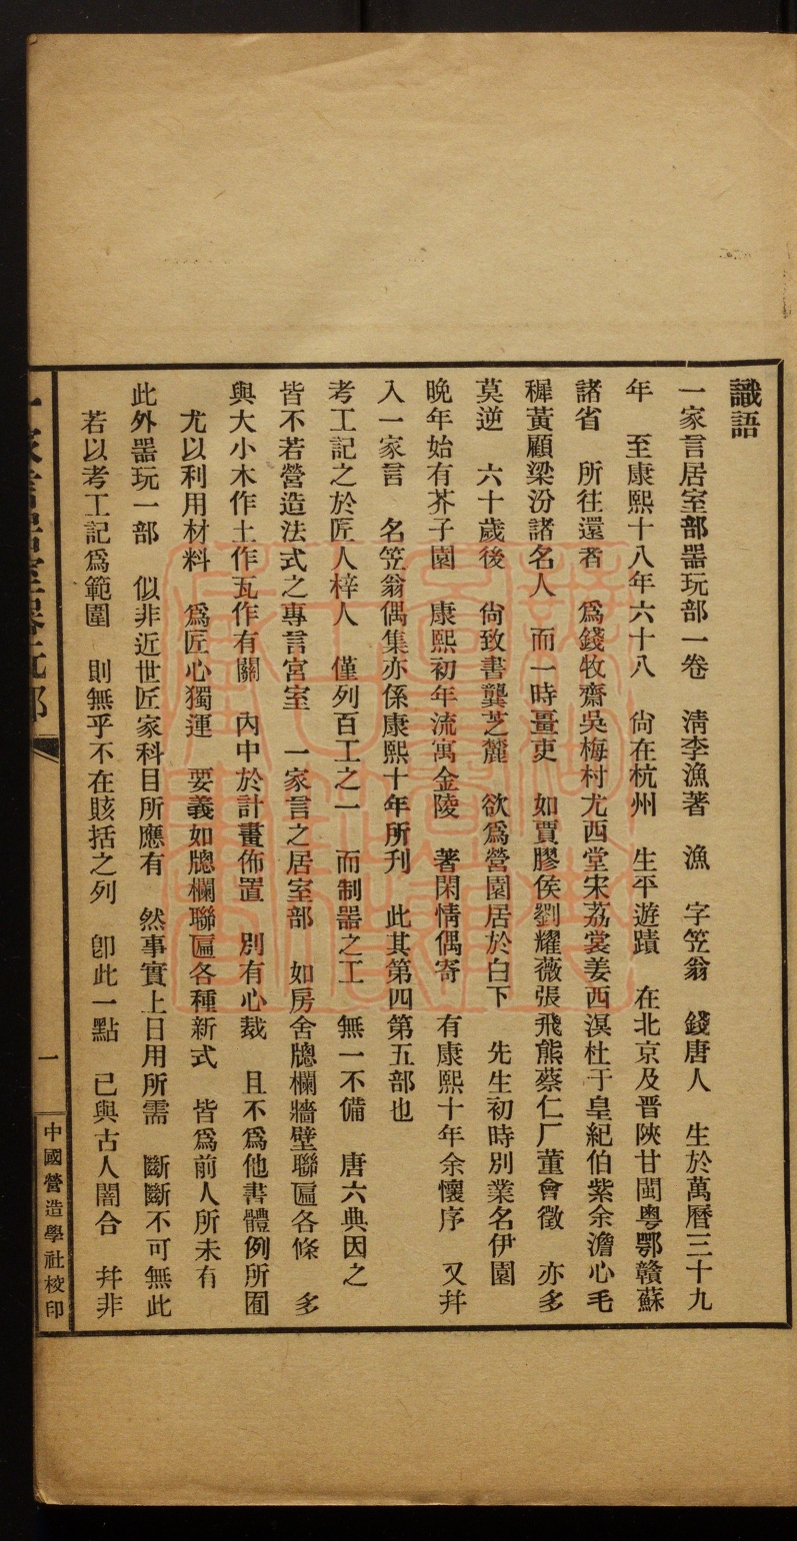 識語
一家言居室部器玩部一卷　清李漁著　漁　字笠翁　錢唐人　生於萬曆三十九
年　至康熙十八年六十八　尙在杭州　生平遊蹟　在北京及晋陝甘閩粵鄂贛蘇
諸省　所往還者　爲錢牧齋吳梅村尤西堂宋荔裳姜西溟杜于皇紀伯紫余澹心毛
穉黃顧梁汾諸名人　而一時畺吏　如賈膠侯劉耀薇張飛熊蔡仁厂董會徵　亦多
莫逆　六十歲後　尙致書龔芝麓　欲爲營園居於白下　先生初時別業名伊園
晚年始有芥子園　康熙初年流寓金陵　著閑情偶寄　有康熙十年余懷序　又幷
入一家言　名笠翁偶集亦係康熙十年所刋　此其第四第五部也
考工記之於匠人梓人　僅列百工之一　而制器之工　無一不備　唐六典因之
皆不若營造法式之專言宮室　一家言之居室部　如房舍牕欄牆壁聯匾各條　多
與大小木作土作瓦作有關　內中於計畫佈置　別有心裁　且不爲他書體例所囿
尤以利用材料　爲匠心獨運　要義如牕欄聯匾各種新式　皆爲前人所未有
此外器玩一部　似非近世匠家科目所應有　然事實上日用所需　斷斷不可無此
若以考工記爲範圍　則無乎不在賅括之列　卽此一點　已與古人闇合　幷非
一家言居室器玩部
一
中國營造學社校印